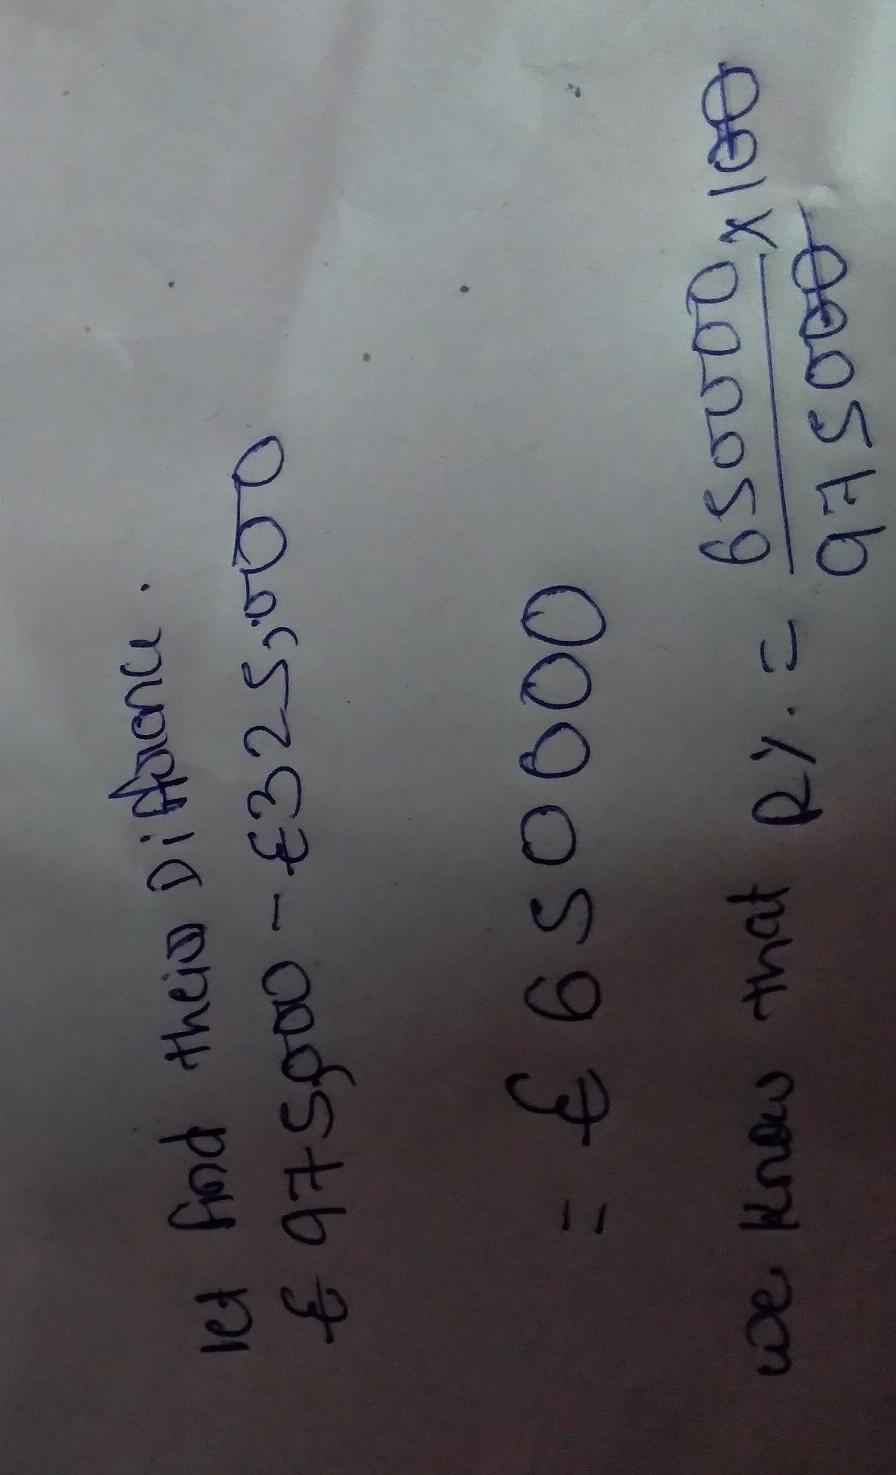 let find their Difference.
£975,000 - £325,000
= £650000
650000 x 100
we know that R%. =
975000